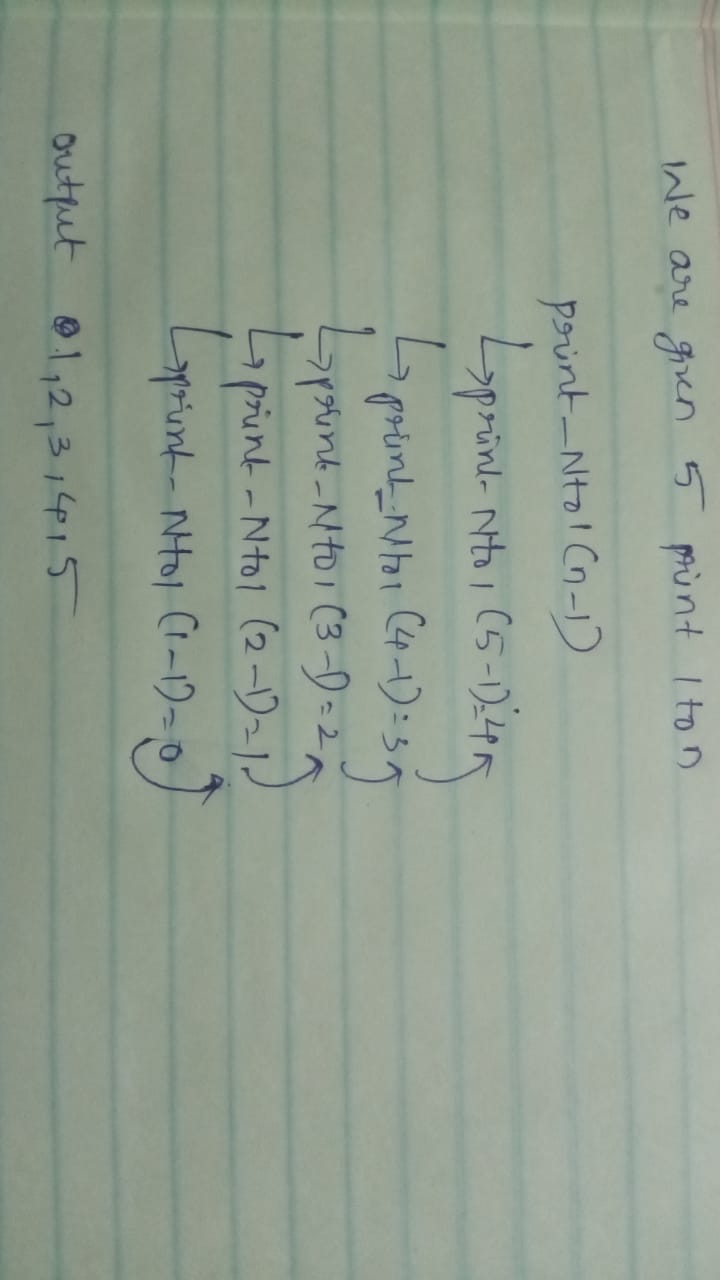 We are given 5 print 1 to n
print-Nto1(n-1)
↳print-Nto1 (5-1)=4
↳print-Nto1 (4-1)=3
↳print-Nto1 (3-1)=2
↳print-Nto1 (2-1)=1
↳print-Nto1 (1-1)=0
output 1,2,3,4,5